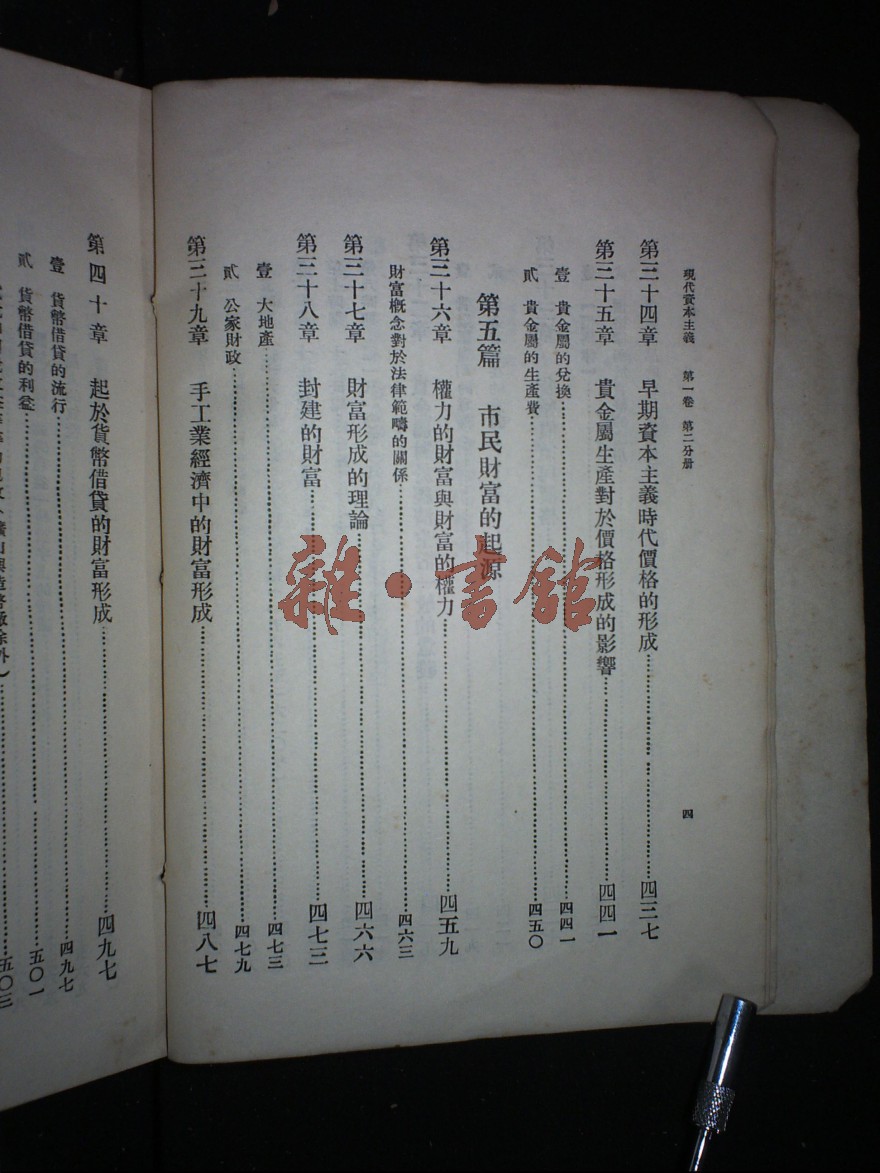 現代資本主義 第一卷 第二分册
四
第三十四章 早期資本主義時代價格的形成……四三七
第三十五章 貴金屬生產對於價格形成的影響……四四一
壹 貴金屬的兌換……四四一
貳 貴金屬的生產費……四五〇
第五篇 市民財富的起源
第三十六章 權力的財富與財富的權力……四五九
財富概念對於法律範疇的關係……四六三
第三十七章 財富形成的理論……四六六
第三十八章 封建的財富……四七三
壹 大地產……四七三
貳 公家財政……四七九
第三十九章 手工業經濟中的財富形成……四八七
第四十章 起於貨幣借貸的財富形成……四九七
壹 貨幣借貸的流行……四九七
貳 貨幣借貸的利益……五〇一
除外)……五〇三
雜·書館